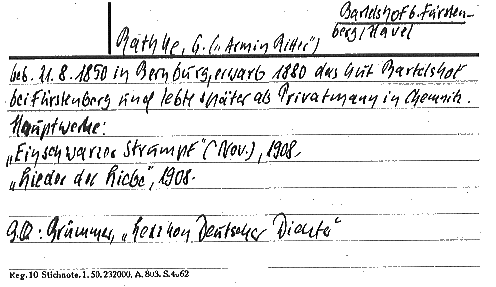 Bartelshof b. Fürsten-
berg/Havel
Rathke, G. („Armin Ritter")
geb. 21.8.1850 in Bernburg, erwarb 1880 das Gut Bartelshof
bei Fürstenberg und lebte später als Privatmann in Chemnitz.
Hauptwerke:
„Ein schwarzer Strumpf" (Nov.), 1908.
„Lieder der Liebe", 1908.
G.Q.: Brümmer, „Lexikon Deutscher Dichter"
Reg. 10 Stichnote. 1. 50. 232000. A. 803. S. 4062